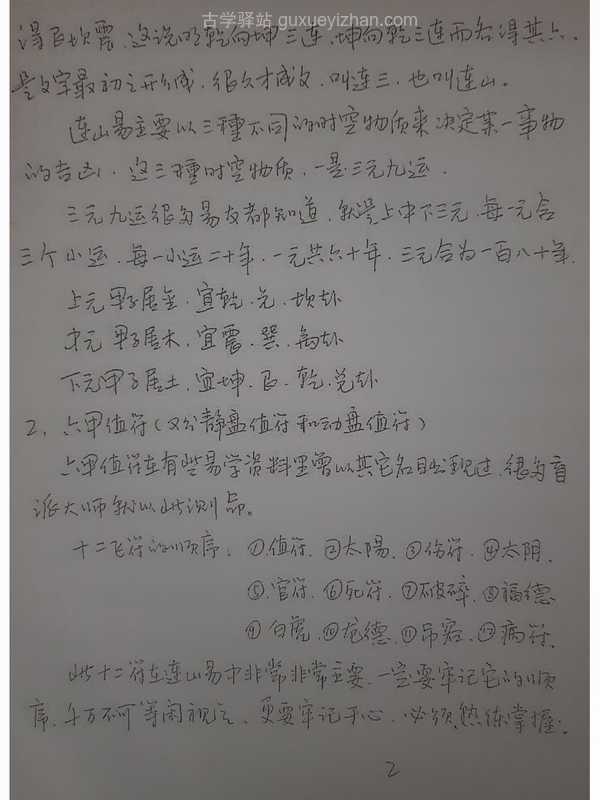 古学驿站 guxueyizhan.com
得艮坎震，这说明乾向坤三连，坤向乾三连而名得其上。
是文字最初之形成，很久才成文，叫连三，也叫连山。
连山易主要以三種不同的时空物质来决定某一事物
的吉凶，这三種时空物质，一是三元九运。
三元九运很多易友都知道，就是上中下三元，每一元含
三个小运，每一小运二十年，一元共六十年，三元合为一百八十年。
上元甲子居金，宜乾、兑、坎卦
中元甲子居木，宜震、巽、离卦
下元甲子居土，宜坤、艮、乾、兑卦
2、六甲值符（又分静盘值符和动盘值符）
六甲值符在有些易学资料里曾以其它名目出现过，很多盲
派大师就以此测命。
十二飞符的顺序：①值符、②太陽、③伤符、④太阴、
⑤官符、⑥死符、⑦破碎、⑧福德
⑨白虎、⑩龙德、⑪吊客、⑫病符。
此十二符在连山易中非常非常主要，一定要牢记它的顺
序，千万不可等闲视之，更要牢记于心，必须熟练掌握。
2